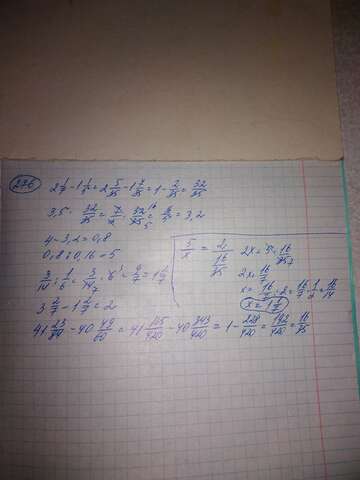 236
2 1/7 - 1 1/5 = 2 5/35 - 1 7/35 = 1 - 2/35 = 32/35
3,5 · 32/35 = 7/2 · 32/35 = 16/5 = 3,2
4 - 3,2 = 0,8
0,8 : 0,16 = 5
3/14 : 1/6 = 3/14 · 6 = 9/7 = 1 2/7
3 2/7 - 1 2/7 = 2
41 23/84 - 40 49/60 = 41 115/420 - 40 343/420 = 1 - 228/420 = 192/420 = 16/35
5/x = 2/(16/35) 2x = 5 · 16/35
2x = 16/7
x = 16/7 : 2 = 16/7 · 1/2 = 16/14